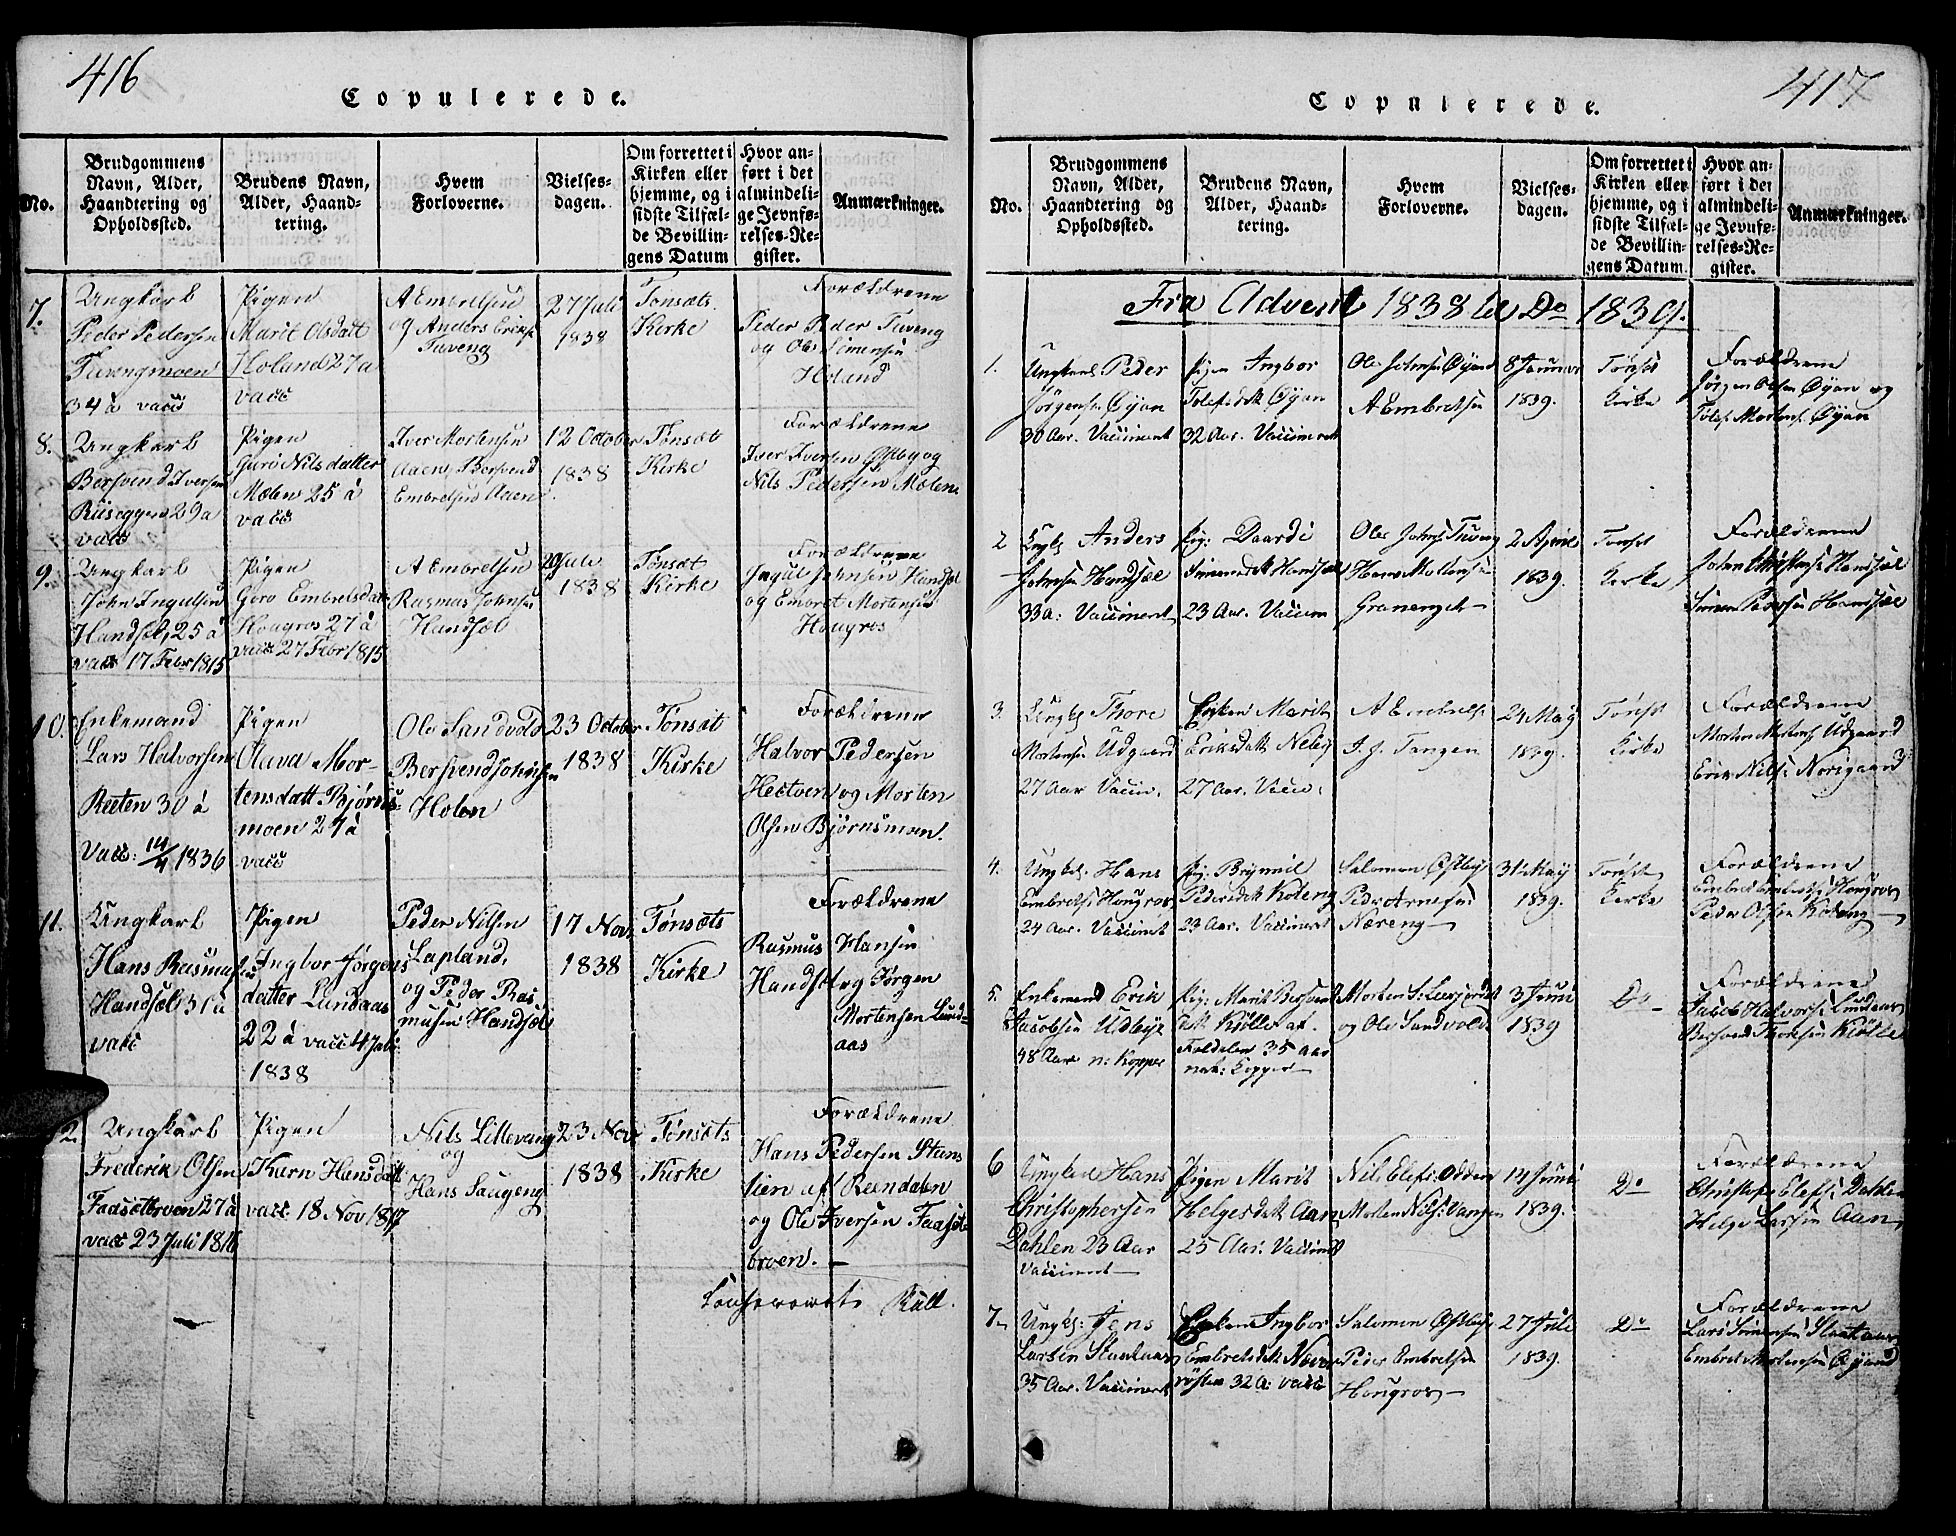 416
Copulerede.
No.
Brudgommens
Navn, Alder,
Haandtering og
Opholdssted.
Brudens Navn,
Alder, Haand-
tering.
Hvem
Forloverne.
Vielses-
dagen.
Om forrettet i
Kirken eller
hjemme, og i
sidste Tilfæl-
de Bevillin-
gens Datum
Hvor an-
ført i det
almindeli-
ge Jevnfø-
relses-Re-
gister.
Anmærkninger.
7.
Ungkarl
Peder Pedersen
Tuvengmoen
34 a vacc
Pigen
Marit Olsdatt
Holand 27 a
vacc
A Embretsen
og Anders Eriks
Tuveng
27 Juli
1838
Tønsæt.
Kirke
Forældrene
Peder Peder Tuveng
og Ole Simensen
Holand
8.
Ungkarl
Bersvend Iversen
Ruseggen 29 a
vacc
Pigen
Guro Nilsdatter
Mælen 25 à
vacc
Iver Mortensen
Aaen, Bersvend
Embretsen Aaen
12 October
1838
Tønsæt
Kirke
Forældrene
Iver Iversen Østby og
Nils Pedersen Mælen
9.
Ungkarl
John Ingulsen
Handsæl, 25 à
vacc 17 Febr 1815
Pigen
Goro Embretsdatt
Hougros 27 à
vacc 27 Febr 1815
A Embretsen
Rasmus Johnsen
Handsæl
29 Juli
1838
Tønsæt
Kirke
Forældrene
Ingul Johnsen Handsæl
og Embret Mortensen
Hougros
10.
Enkemand
Lars Halvorsen
Reeten 30 à
Vacc: 14/4 1836
Pigen
Olava Mor-
tensdatt Bjørns-
moen 27 à
vacc
Ole Sandvold
Bersvend Johnsen
Holen
23 October
1838
Tønsæt
Kirke
Forældrene
Halvor Pedersen
Hestven og Morten
Olsen Bjørnsmoen.
11.
Ungkarl
Hans Rasmussen
Handsæl 31 à
vacc
Pigen
Ingbor Jørgens
datter Lundaas
22 à vacc 4 Juli
1838
Peder Nilsen
Lapland,
og Peder Ras
musen Handsæl
17 Nov.
1838
Tønsæts
Kirke
Forældrene
Rasmus Hansen
Handsæl og Jørgen
Mortensen Lund-
aas
12.
Ungkarl
Frederik Olsen
Faasetbroen 27 à
vacc 23 Juli 1816
Pigen
Karn Hansdatt
vacc 18 Nov 1817
Nils Lillevang
og
Hans Saugeng
23 Nov
1838
Tønsæts
Kirke
Forældrene
Hans Pedersen
lien af Reendalen
og Ole Iversen Faaset
broen. —
417
Copulerede.
No.
Brudgommens
Navn, Alder,
Haandtering og
Opholdssted.
Brudens Navn,
Alder, Haand-
tering.
Hvem
Forloverne.
Vielses-
dagen.
Om forrettet i
Kirken eller
hjemme, og i
sidste Tilfæl-
de Bevillin-
gens Datum.
Hvor an-
ført i det
almindeli-
ge Jevnfø-
relses-Re-
gister.
Anmærkninger.
Fra Advent 1838 til Do 1839.
1.
Ungkarl Peder
Jørgensen Øyan
30 Aar. Vaccineret
Pigen Ingbor
Tolefsdatt Øyan
32 Aar. Vaccineret
Ole Johnsen Øyan
A Embretsen
8 Januar
1839.
Tønset
Kirke
Forældrene
Jørgen Olsen Øyan og
Tolef Mortens. Øyan
2
Ungk Anders
Johnsen Handsæl
33 a: Vaccineret
Pig: Daardi
Simensdatt Handsæl
23 Aar. Vaccin
Ole Johns Tuveng
Hans Mortensen
Granenget —
2 April
1839.
Tønset
Kirke
Forældrene
John Handsæl
Simen Pedersen Handsæl
3.
Ungk Thore
Mortensen Udgaard
27 Aar Vaccin.
Enken Marit
Eriksdatt Neby
27 Aar. Vaccin.
A Embrets
J. J. Tangen
24 May
1839.
Tønset
Kirke
Forældrene
Morten Udgaard
Erik Nils Norigaard
4.
Ungk. Hans
Embrets Hougros
24 Aar. Vaccineret
Pig: Brynnil
Pedersdatt Koteng
23 Aar. Vaccineret
Salomon Østby
Peder Arnesen
Næreng —
31 May
1839.
Tønset
Kirke
Forældrene
Embret Hougros
Peder Olsen Koteng —
5.
Enkemand Erik
Jacobsen Udbye
48 Aar n: Kopper
Pig: Marit Bersvend
datt Kiølle af
Foldalen 35 aar
nat: Kopper —
Morten S:
og Ole Sandvold
3 Juni
1839
Do —
Forældrene
Jacob Halvors: Lundaas
Bersvend Thoresen Kiølle
6
Ungkarl Hans
Christophersen
Dahlen 23 Aar
Vaccineret —
Pigen Marit
Helgesdatt Aaen
25 Aar: Vaccineret
Nils Elefs: Odden
Morten Nils: Vangen
14 Juni
1839.
Do
Forældrene
Christopher Elefs Dahlen
Helge Larsen Aaen
7.
Ungk: Jens
Larsen Slaataas
35 Aar. Vaccineret
Enken Ingbor
Embretsdatt Nøren
røsten 32 A: vacc
Salomon Østbye
Peder Embretsen
Hougros —
27 Juli
1839.
Do
Forældrene
Lars Simensen Slaataas
Embret Mortensen Øyan